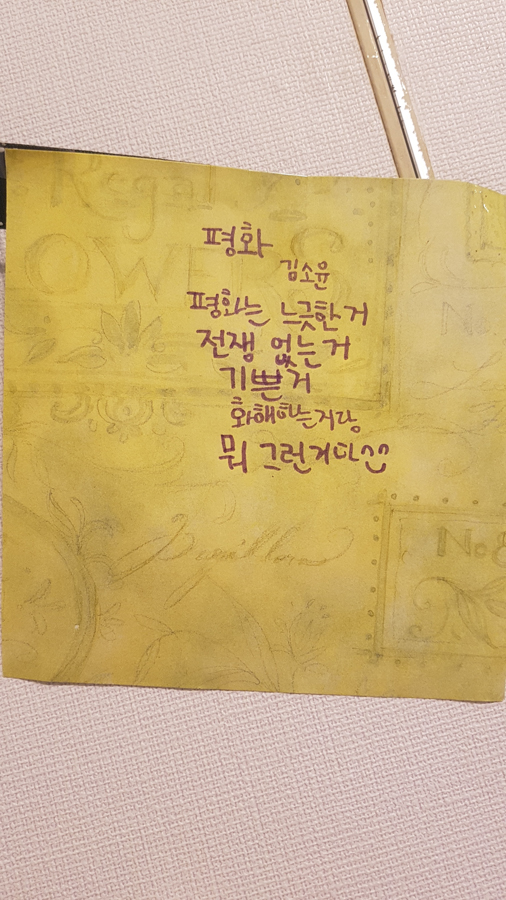 Regal
OWELS
No
평화
김소윤
평화는 느긋한거
전쟁 없는거
기쁜거
화해하는거랑
뭐 그런거다^^
No8